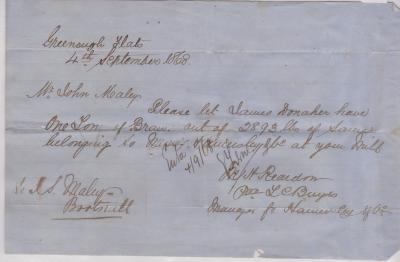 Greenough Flats
4th September 1868.
Mr John Maley
Please let James Donaher have
One Ton of Bran out of 2893 lbs of Same
belonging to Messrs &Co at your Mill
4/9/68
Wm H Reardon
Pro L C Burges
Manager for &Co
To J. S. Maley
Bootenall